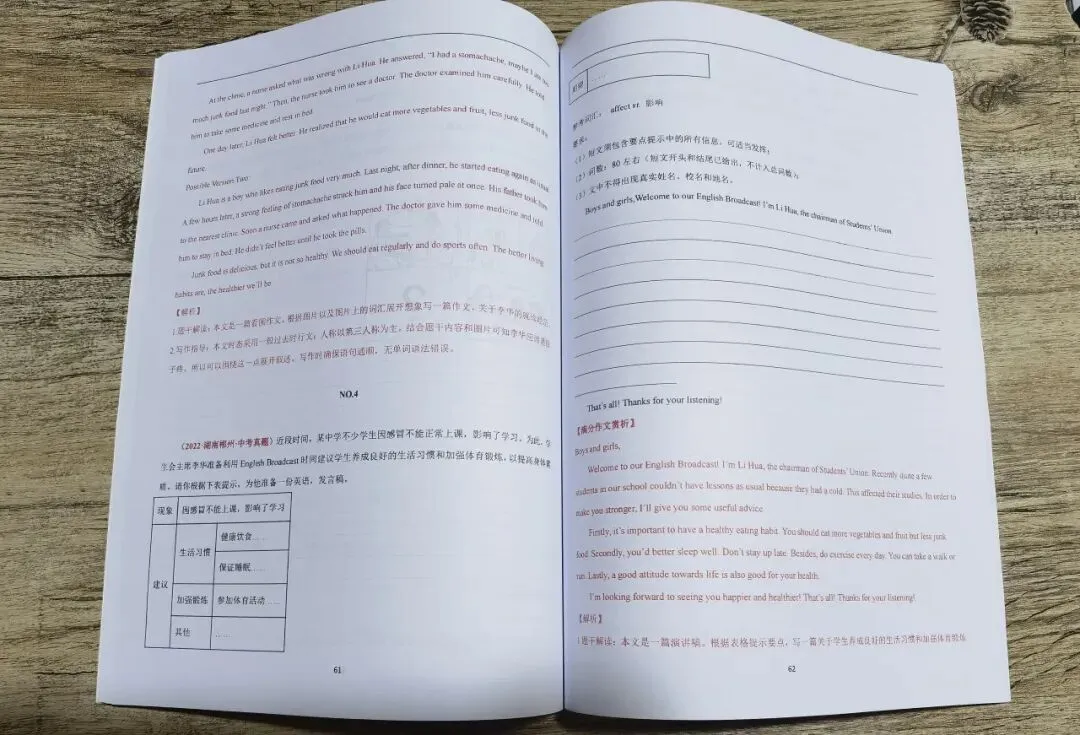 At the clinic, a nurse asked what was wrong with Li Hua. He answered, "I had a stomachache, maybe I ate too
much junk food last night." Then, the nurse took him to see a doctor. The doctor examined him carefully. He told
him to take some medicine and rest in bed.
One day later, Li Hua felt better. He realized that he would eat more vegetables and fruit, less junk food in the
future.
Possible Version Two
Li Hua is a boy who likes eating junk food very much. Last night, after dinner, he started eating again as usual.
A few hours later, a strong feeling of stomachache struck him and his face turned pale at once. His father took him
to the nearest clinic. Soon a nurse came and asked what happened. The doctor gave him some medicine and told
him to stay in bed. He didn't feel better until he took the pills.
Junk food is delicious, but it is not so healthy. We should eat regularly and do sports often. The better living
habits are, the healthier we'll be
【解析】
1.题干解读：本文是一篇看图作文。根据图片以及图片上的词汇展开想象写一篇作文，关于李华的
2.写作指导：本文时态采用一般过去时行文；人称以第三人称为主。结合题干内容和图片可知李华
所以可以围绕这一点展开叙述。写作时确保语句通顺，无单词语法错误。
NO.4
（2022·湖南郴州·中考真题）近段时间，某中学不少学生因感冒不能正常上课，影响了学习。为此，学
生会主席李华准备利用 English Broadcast 时间建议学生养成良好的生活习惯和加强体育锻炼，以提高身体素
质。请你根据下表提示，为他准备一份英语，发言稿。
现象 因感冒不能上课，影响了学习
建议 生活习惯 健康饮食……
保证睡眠……
加强锻炼 参加体育活动……
其他 ……
61
……
参考词汇： affect vt. 影响
要求：
（1）短文须包含要点提示中的所有信息，可适当发挥；
（2）词数：80 左右（短文开头和结尾已给出，不计入总词数）；
（3）文中不得出现真实姓名、校名和地名。
Boys and girls,Welcome to our English Broadcast! I'm Li Hua, the chairman of Students' Union.
That's all! Thanks for your listening!
【满分作文赏析】
Boys and girls,
Welcome to our English Broadcast! I'm Li Hua, the chairman of Students' Union. Recently quite a few
students in our school couldn't have lessons as usual because they had a cold. This affected their studies. In order to
make you stronger, I'll give you some useful advice.
Firstly, it's important to have a healthy eating habit. You should eat more vegetables and fruit but less junk
food. Secondly, you'd better sleep well. Don't stay up late. Besides, do exercise every day. You can take a walk or
run. Lastly, a good attitude towards life is also good for your health.
I'm looking forward to seeing you happier and healthier! That's all! Thanks for your listening!
【解析】
1.题干解读：本文是一篇演讲稿。根据表格提示要点，写一篇关于学生养成良好的生活习惯和加强体育锻炼
62